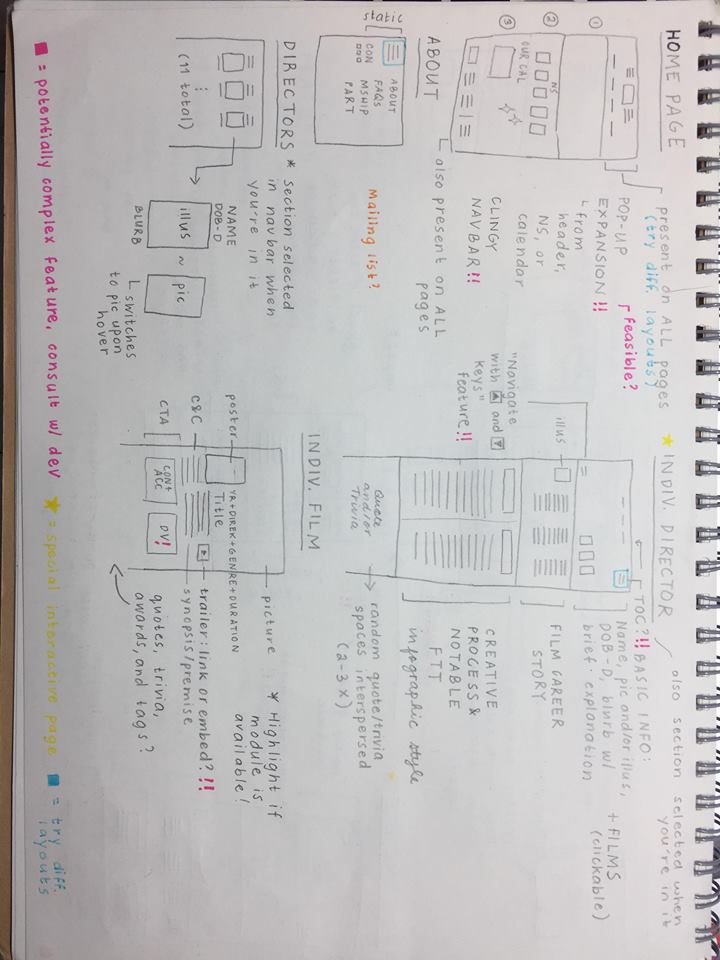 HOME PAGE
present on ALL pages
(try diff. layouts)
POP-UP
feasible?
EXPANSION!!
from
header,
NS, or
calendar
CLINGY
NAVBAR!!
1
2
NS
OUR CAL
3
also present on ALL
pages
ABOUT
static
ABOUT
FAQs
CON
MSHIP
PART
Mailing list?
DIRECTORS * Section selected
in navbar when
you're in it
(11 total)
NAME
DOB-D
illus ~ pic
BLURB
switches
to pic upon
hover
★ INDIV. DIRECTOR
also section selected when
you're in it
TOC?!! BASIC INFO:
Name, pic and/or illus,
DOB-D, blurb w/
brief explanation
+ FILMS
(clickable)
illus
FILM CAREER
STORY
"Navigate
with ▲ and ▼
keys"
feature!!
CREATIVE
PROCESS &
NOTABLE
FTT
infographic style
Quote
and/or
Trivia
random quote/trivia
spaces interspersed
(2-3 x)
INDIV. FILM
picture
* Highlight if
module is
available!
poster
YR+DIREK+GENRE+DURATION
Title
trailer: link or embed?!!
C&C
synopsis/premise
CTA
CONT
ACC
DV!
quotes, trivia,
awards, and tags?
■ = potentially complex feature, consult w/ dev ★ = special interactive page ■ = try diff.
layouts